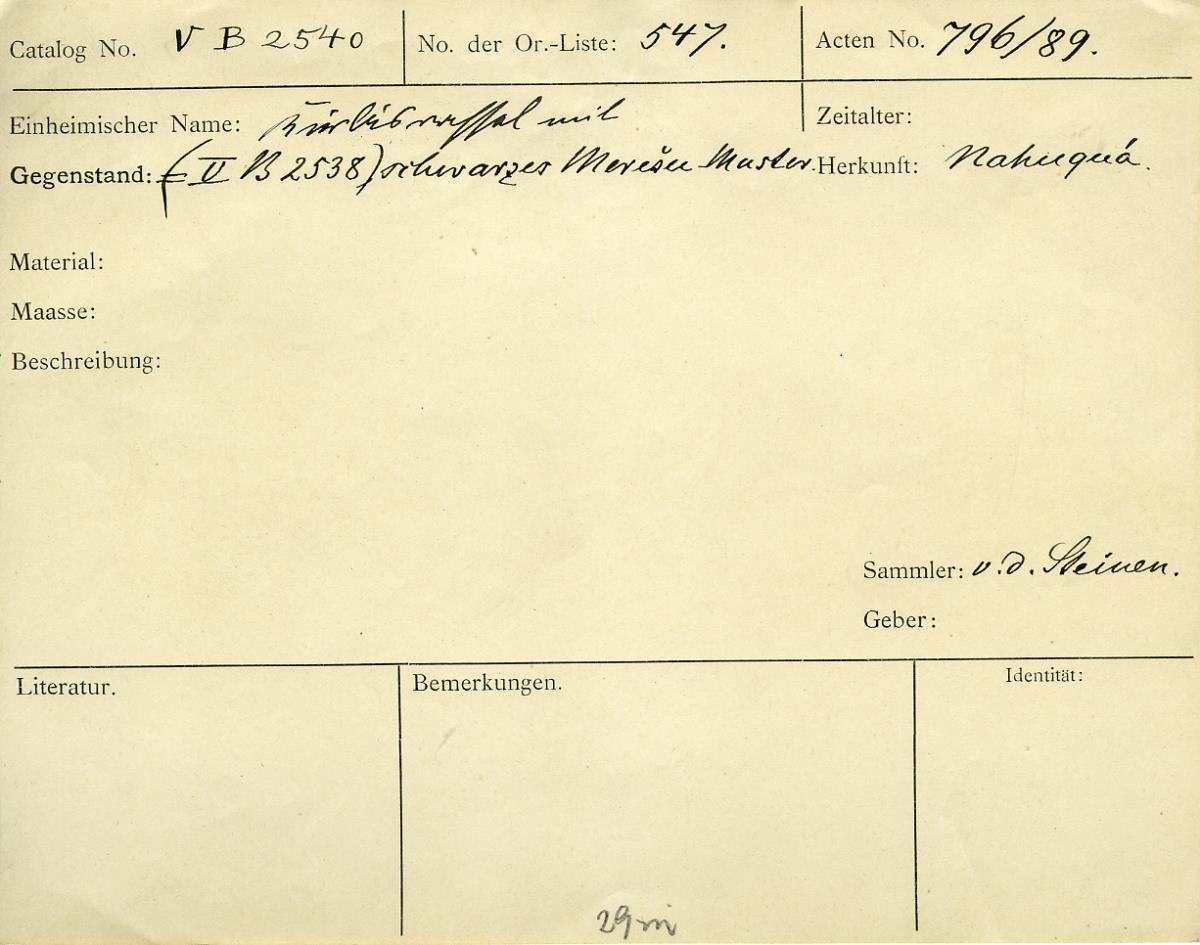 Catalog No. V B 2540 No. der Or.-Liste: 547. Acten No. 796/89.
Einheimischer Name: Kürbisrassel mit Zeitalter:
Gegenstand: (= V B 2538) schwarzes Merešu-Muster. Herkunft: Nahuquá.
Material:
Maasse:
Beschreibung:
Sammler: v. d. Steinen.
Geber:
Literatur. Bemerkungen. Identität:
29